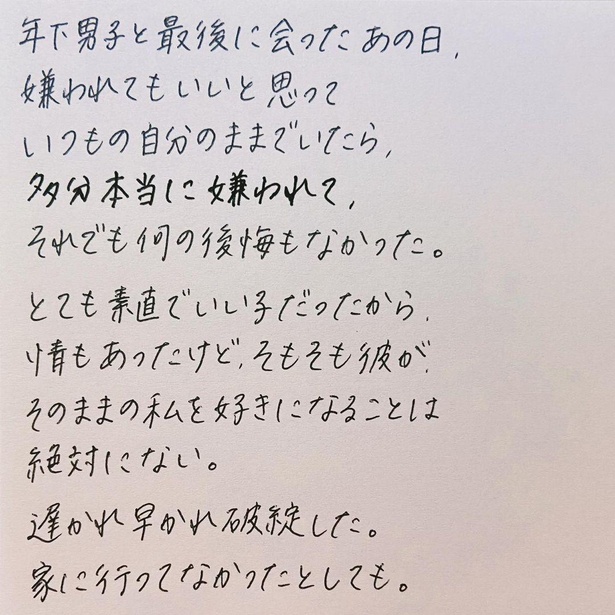 年下男子と最後に会ったあの日、
嫌われてもいいと思って
いつもの自分のままでいたら、
多分本当に嫌われて、
それでも何の後悔もなかった。
とても素直でいい子だったから、
情もあったけど、そもそも彼が、
そのままの私を好きになることは
絶対にない。
遅かれ早かれ破綻した。
家に行ってなかったとしても。